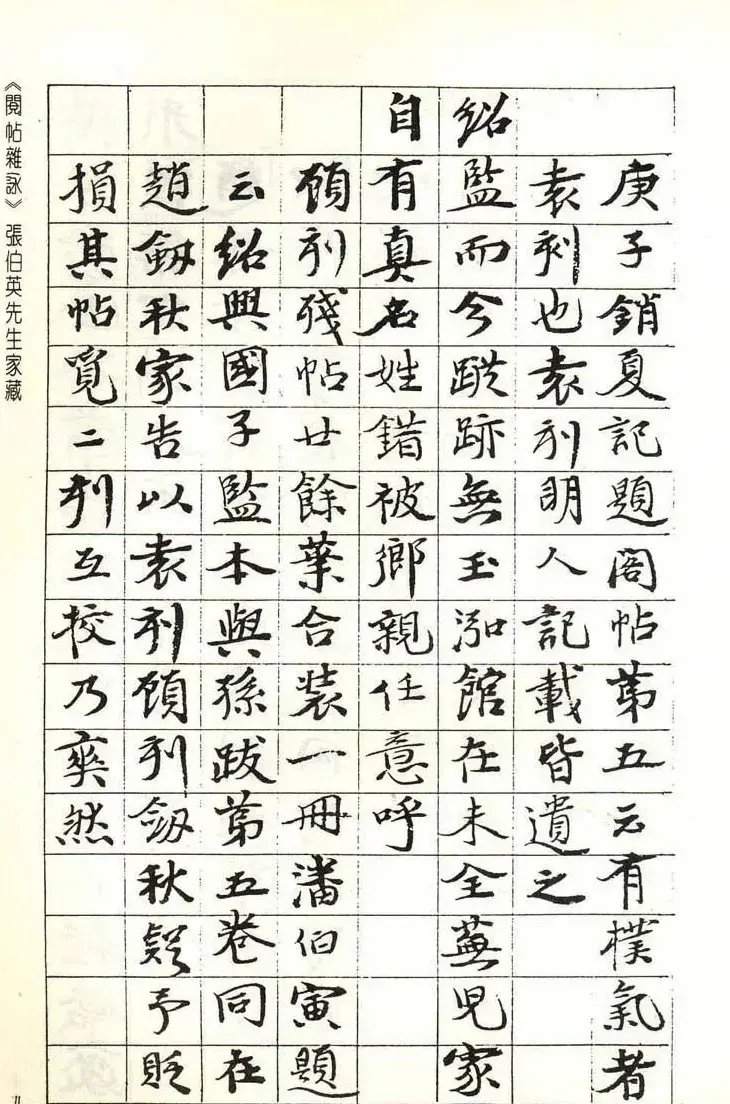 庚子銷夏記題閣帖第五云有樸氣者
袁刹也袁刹明人記載皆遺之
紹監而今蹤跡無玉泓館在未全蕪兒家
自有真名姓錯被鄉親任意呼
顧刹殘帖廿餘葉合裝一冊潘伯寅題
云紹興國子監本與孫跋第五卷同在
趙劒秋家告以袁刹顧刹劒秋疑予貶
損其帖覓二刹互挍乃爽然
《閱帖雜詠》張伯英先生家藏